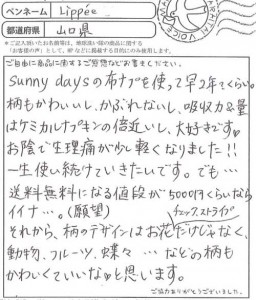 ペンネーム Lippée
都道府県 山口県
＊ご記入頂いたお名前等は、地球洗い隊の商品に関する
「お客様の声」として、HPなどに掲載する目的にのみ使用します。
ご自由に商品に関するご感想などお書きください。
sunny daysの布ナプを使って早2年てくらい。
柄もかわいいし、かぶれないし、吸収力&量
はケミカルナプキンの倍近いし、大好きです♥
お陰で生理痛が少し軽くなりました!!
一生使い続けていきたいです。でも…
送料無料になる値段が5000円くらいなら
イイナ…。(願望)
チェック、ストライプ
それから、柄のデザインはお花だけじゃなく、
動物、フルーツ、蝶々…などの柄も
かわいくていいなぁと思います。
ご協力ありがとうございました。